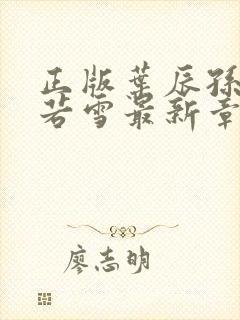 正版叶辰孙
若雪最新章
廖志明